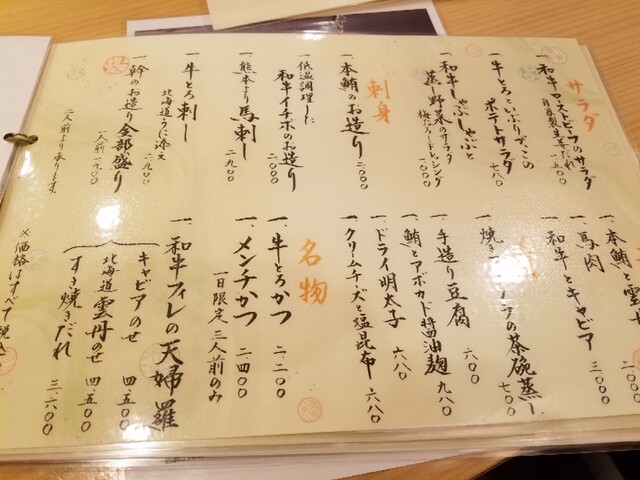 サラダ
一、和牛ローストビーフのサラダ
自家製生姜だれ 一、五〇〇
一、牛とろといぶりがっこの
ポテトサラダ 七八〇
一、和牛しゃぶしゃぶと
蒸し野菜のサラダ
梅おろしドレッシング 一、〇〇〇
刺身
一、本鮪のお造り 二、〇〇〇
一、低温調理した
和牛イチボのお造り 二、〇〇〇
一、熊本より 馬刺し 二、九〇〇
一、牛とろ刺し
北海道うに添え 二、九〇〇
一、幹のお造り 全部盛り
一人前 一、九〇〇
二人前より承ります
一、本鮪と雲丹
一、馬肉 二、〇〇〇
一、和牛とキャビア 三、〇〇〇
の茶碗蒸し 七〇〇
一、手造り豆腐 六〇〇
一、鮪とアボカド醤油麹 九八〇
一、ドライ明太子 六八〇
一、クリームチーズと塩昆布 六八〇
名物
一、牛とろかつ 二、二〇〇
一、メンチかつ 二、四〇〇
一日限定 三人前のみ
一、和牛フィレの天婦羅
キャビアのせ 四、五〇〇
北海道 雲丹のせ 四、五〇〇
すき焼きだれ 三、六〇〇
※価格はすべて税込